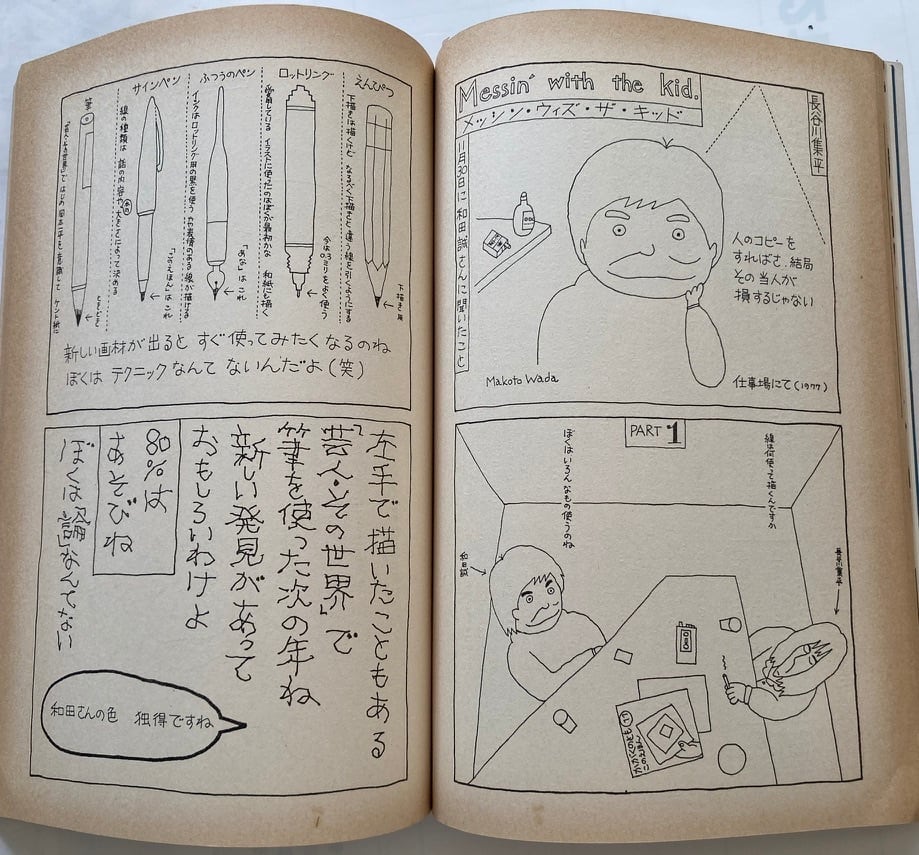 Messin' with the kid.
メッシン・ウィズ・ザ・キッド
長谷川集平
11月30日に和田誠さんに聞いたこと
人のコピーを
すればさ、結局
その当人が
損するじゃない
Makoto Wada
仕事場にて(1977)
PART 1
線は何使って描くんですか
ぼくはいろんなもの使うのね
長谷川集平
和田誠
えんぴつ
下描きは描くけど なるべく下描きと違う線を引くようにする
下描き用
ロットリング
愛用している イラストに使ったのはぼくが最初かな 和紙にも描く
今は0.3ミリをよく使う
ふつうのペン
インクはロットリング用の黒を使う やや表情のある線が描ける
「あな」はこれ
サインペン
線の種類は 話の内容や、大きさによって決める
「このえほん」はこれ
筆
「芸人・その世界」ではじめ 岡本一平を意識して ケント紙に
ときどき
新しい画材が出ると すぐ使ってみたくなるのね
ぼくは テクニックなんて ないんだよ(笑)
左手で描いたこともある
「芸人・その世界」で
筆を使った次の年ね
新しい発見があって
おもしろいわけよ
80%は
あそびね
ぼくは
なんてない
和田さんの色 独得ですね